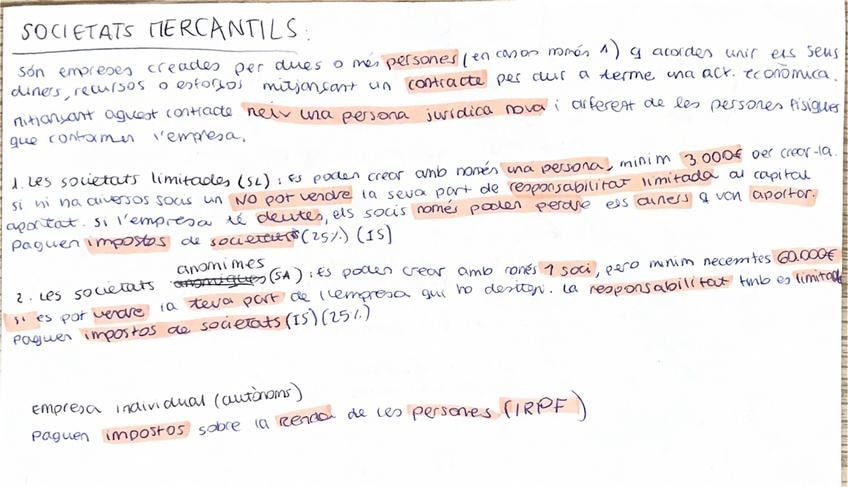 SOCIETATS MERCANTILS:
són empreses creades per dues o més persones (en casos només 1) q acorden unir els seus
diners, recursos o esforços mitjançant un contracte per dur a terme una act. econòmica.
mitjançant aquest contracte neix una persona jurídica nova i diferent de les persones físiques
que conformen l'empresa.
1. Les societats limitades (SL): Es poden crear amb només una persona, mínim 3.000€ per crear-la.
si hi ha diversos socis un NO pot vendre la seva part de responsabilitat limitada al capital
aportat. Si l'empresa té deutes, els socis només poden perdre els diners q van aportar.
Paguen impostos de societats (25%) (IS)
anònimes
2. Les societats (SA): Es poden crear amb només 1 soci, però mínim necesites 60.000€
si es pot vendre la teva part de l'empresa qui ho desitgi. La responsabilitat tmb és limitada
Paguen impostos de societats (IS) (25%)
Empresa individual (autònoms)
Paguen impostos sobre la Renda de les persones (IRPF)